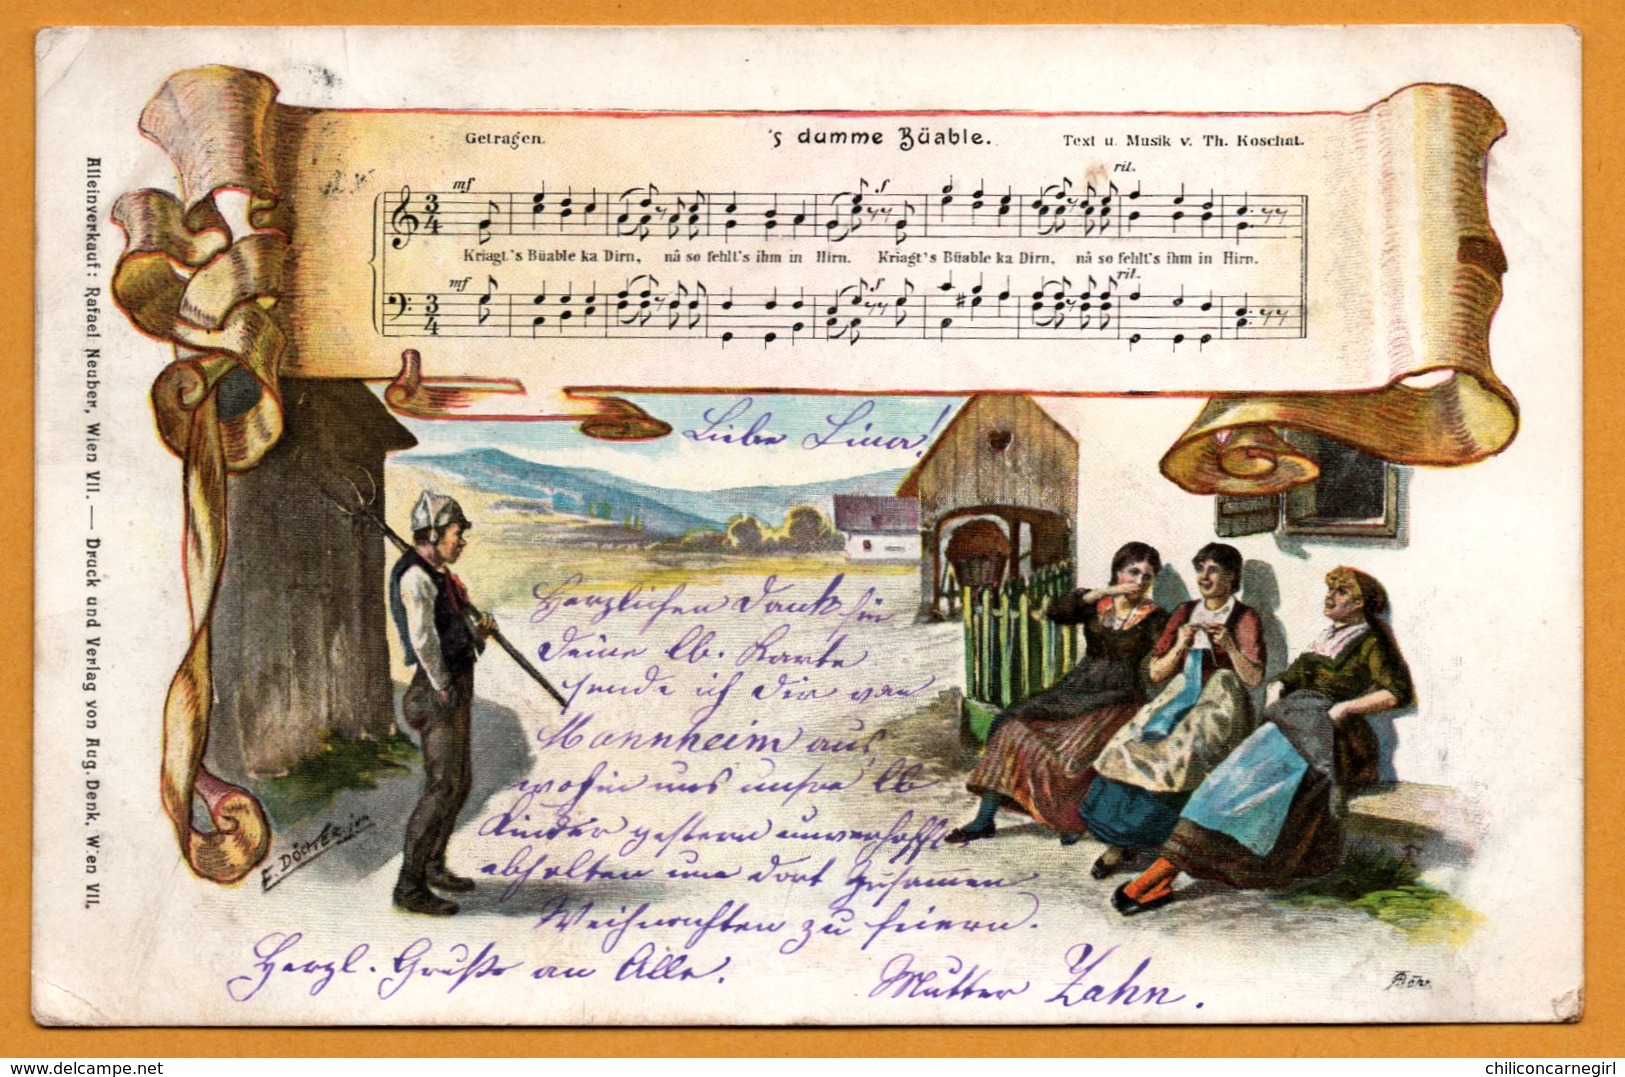 Getragen.
's dumme Büable.
Text u. Musik v. Th. Koschat.
mf
f
rit.
Kriagt's Büable ka Dirn, nå so fehlt's ihm in Hirn. Kriagt's Büable ka Dirn, nå so fehlt's ihm in Hirn.
mf
f
rit.
Alleinverkauf: Rafael Neuber, Wien VII. — Druck und Verlag von Aug. Denk. Wien VII.
Liebe Lina!
Herzlichen Dank für
Deine lb. Karte
sende ich Dir von
Mannheim aus,
wohin uns unsre lb
Kinder gestern unverhofft
abholten um dort zusamen
Weihnachten zu feiern.
Herzl. Grüße an Alle.
Mutter Zahn.
E. DÖCKER jun
delcampe.net
chiliconcarnegirl